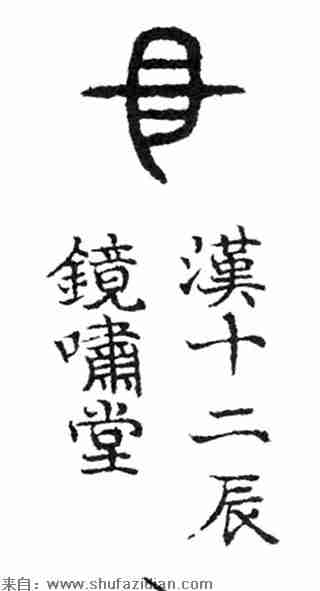 漢十二辰
鏡嘯堂
来自：www.shufazidian.com